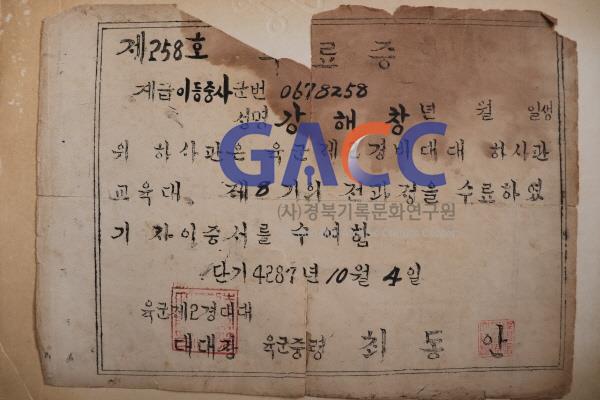 제258호 수료증
계급 이등중사 군번 0678258
성명 강해창 년 월 일생
위 하사관은 육군제2경비대대 하사관
교육대 제8기의 전과정을 수료하였
기 자이증서를 수여함
단기4287년 10월 4일
육군제2경대대
대대장 육군중령 최동안
GACC
(사)경북기록문화연구원